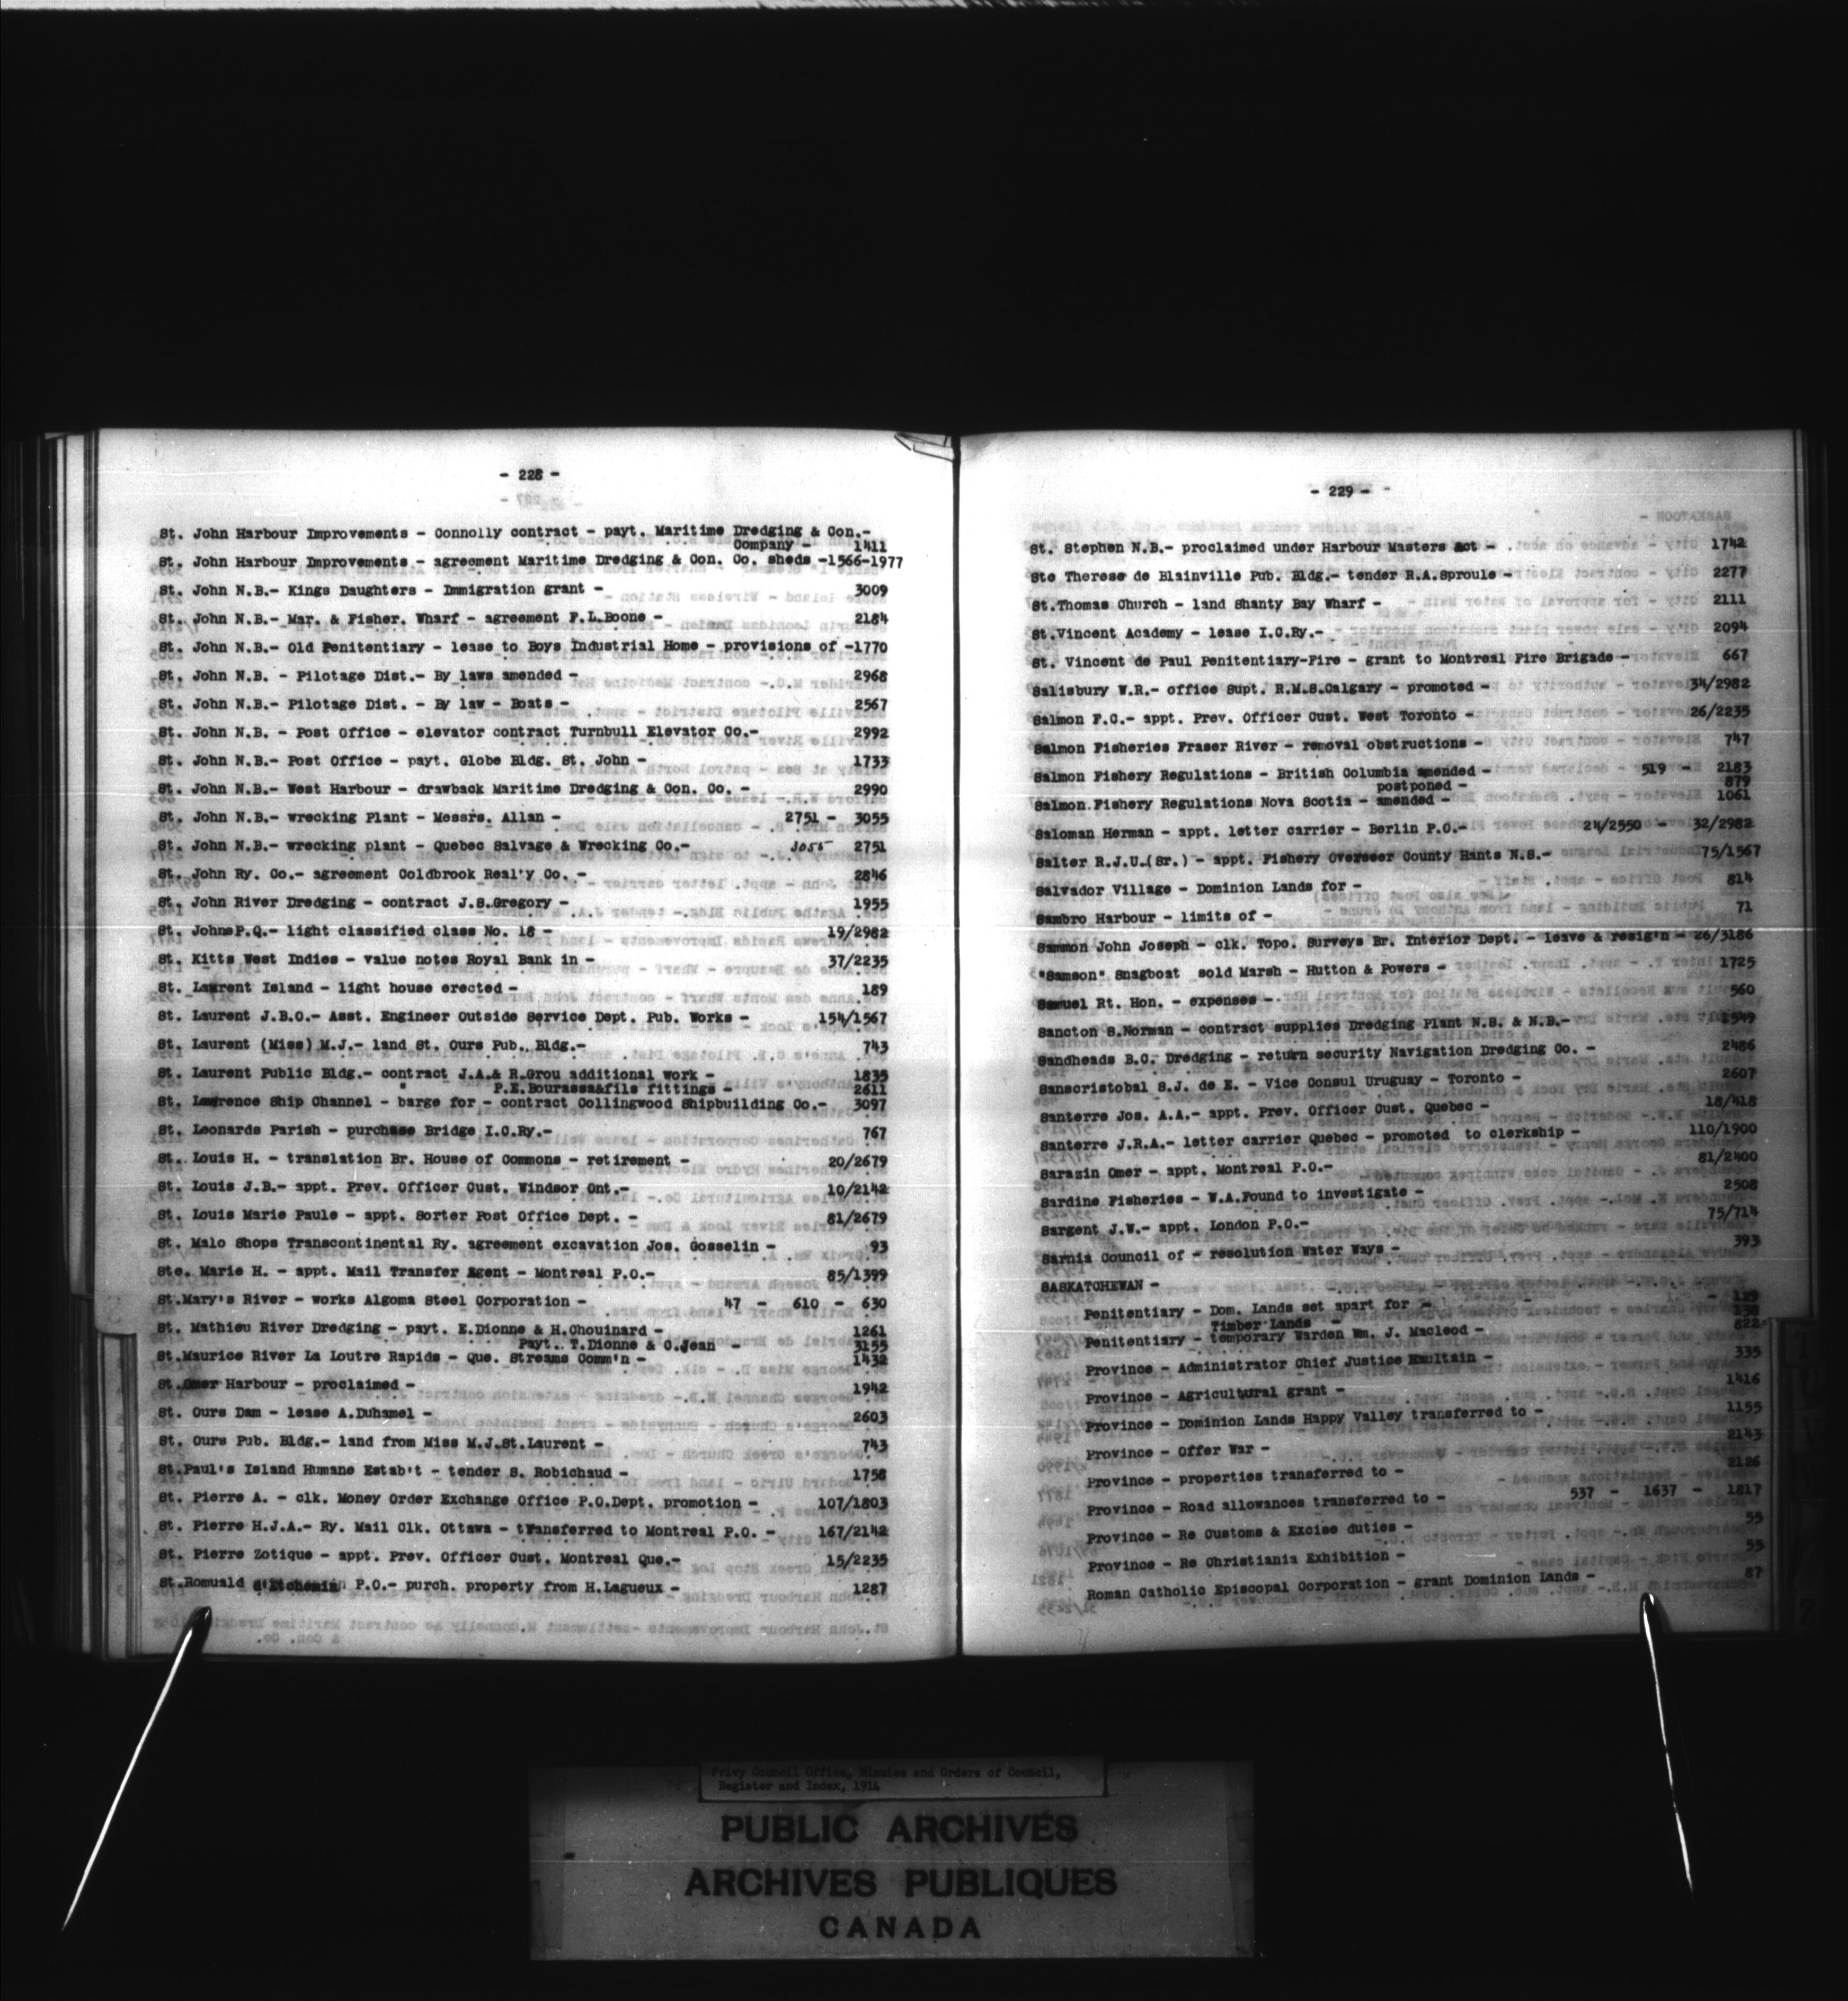 - 228 -
St. John Harbour Improvements - Connolly contract - payt. Maritime Dredging & Con.-
Company - 1411
St. John Harbour Improvements - agreement Maritime Dredging & Con. Co. sheds -1566-1977
St. John N.B.- Kings Daughters - Immigration grant - 3009
St. John N.B.- Mar. & Fisher. Wharf - agreement F.L.Boone - 2184
St. John N.B.- Old Penitentiary - lease to Boys Industrial Home - provisions of -1770
St. John N.B. - Pilotage Dist.- By laws amended - 2968
St. John N.B.- Pilotage Dist. - By law - Boats - 2567
St. John N.B. - Post Office - elevator contract Turnbull Elevator Co.- 2992
St. John N.B.- Post Office - payt. Globe Bldg. St. John - 1733
St. John N.B.- West Harbour - drawback Maritime Dredging & Con. Co. - 2990
St. John N.B.- wrecking Plant - Messrs. Allan - 2751 - 3055
St. John N.B.- wrecking plant - Quebec Salvage & Wrecking Co.- 3055 2751
St. John Ry. Co.- agreement Coldbrook Real'y Co. - 2846
St. John River Dredging - contract J.S.Gregory - 1955
St. JohnsP.Q.- light classified class No. 18 - 19/2982
St. Kitts West Indies - value notes Royal Bank in - 37/2235
St. Laurent Island - light house erected - 189
St. Laurent J.B.O.- Asst. Engineer Outside Service Dept. Pub. Works - 154/1567
St. Laurent (Miss) M.J.- land St. Ours Pub. Bldg.- 743
St. Laurent Public Bldg.- contract J.A.& R.Grou additional work - 1835
" P.E.Bourassa&fils fittings - 2611
St. Lawrence Ship Channel - barge for - contract Collingwood Shipbuilding Co.- 3097
St. Leonards Parish - purchase Bridge I.C.Ry.- 767
St. Louis H. - translation Br. House of Commons - retirement - 20/2679
St. Louis J.B.- appt. Prev. Officer Cust. Windsor Ont.- 10/2142
St. Louis Marie Paule - appt. Sorter Post Office Dept. - 81/2679
St. Malo Shops Transcontinental Ry. agreement excavation Jos. Gosselin - 93
Ste. Marie H. - appt. Mail Transfer Agent - Montreal P.O.- 85/1399
St.Mary's River - works Algoma Steel Corporation - 47 - 610 - 630
St. Mathieu River Dredging - payt. E.Dionne & H.Chouinard - 1261
Payt. T.Dionne & C.Jean - 3155
St.Maurice River La Loutre Rapids - Que. Streams Comm'n - 1432
St.Omer Harbour - proclaimed - 1942
St. Ours Dam - lease A.Duhamel - 2603
St. Ours Pub. Bldg.- land from Miss M.J.St.Laurent - 743
St.Paul's Island Humane Estab't - tender S. Robichaud - 1758
St. Pierre A. - clk. Money Order Exchange Office P.O.Dept. promotion - 107/1803
St. Pierre H.J.A.- Ry. Mail Clk. Ottawa - transferred to Montreal P.O. - 167/2142
St. Pierre Zotique - appt. Prev. Officer Cust. Montreal Que.- 15/2235
St.Romuald d'Etchemin P.O.- purch. property from H.Lagueux - 1287
- 229 -
St. Stephen N.B.- proclaimed under Harbour Masters Act - 1742
Ste Therese de Blainville Pub. Bldg.- tender R.A.Sproule - 2277
St.Thomas Church - land Shanty Bay Wharf - 2111
St.Vincent Academy - lease I.C.Ry.- 2094
St. Vincent de Paul Penitentiary-Fire - grant to Montreal Fire Brigade - 667
Salisbury W.R.- office Supt. R.M.S.Calgary - promoted - 34/2982
Salmon F.C.- appt. Prev. Officer Cust. West Toronto - 26/2235
Salmon Fisheries Fraser River - removal obstructions - 747
Salmon Fishery Regulations - British Columbia amended - 519 - 2183
postponed - 879
Salmon Fishery Regulations Nova Scotia - amended - 1061
Saloman Herman - appt. letter carrier - Berlin P.O.- 24/2550 - 32/2982
Salter R.J.U.(Sr.) - appt. Fishery Overseer County Hants N.S.- 75/1567
Salvador Village - Dominion Lands for - 814
Sambro Harbour - limits of - 71
Sammon John Joseph - clk. Topo. Surveys Br. Interior Dept. - leave & resig'n - 26/3186
"Samson" Snagboat sold Marsh - Hutton & Powers - 1725
Samuel Rt. Hon. - expenses - 560
Sancton S.Norman - contract supplies Dredging Plant N.S. & N.B.- 1549
Sandheads B.C. Dredging - return security Navigation Dredging Co. - 2486
Sanscristobal S.J. de E. - Vice Consul Uruguay - Toronto - 2607
Santerre Jos. A.A.- appt. Prev. Officer Cust. Quebec - 18/418
Santerre J.R.A.- letter carrier Quebec - promoted to clerkship - 110/1900
Sarazin Omer - appt. Montreal P.O.- 81/2400
Sardine Fisheries - W.A.Found to investigate - 2508
Sargent J.W.- appt. London P.O.- 75/714
Sarnia Council of - resolution Water Ways - 393
SASKATCHEWAN -
Penitentiary - Dom. Lands set apart for - 129
Timber Lands - 138
Penitentiary - temporary Warden Wm. J. Macleod - 822
Province - Administrator Chief Justice Haultain - 335
Province - Agricultural grant - 1416
Province - Dominion Lands Happy Valley transferred to - 1155
Province - Offer War - 2143
Province - properties transferred to - 2126
Province - Road allowances transferred to - 537 - 1637 - 1817
Province - Re Customs & Excise duties - 55
Province - Re Christiania Exhibition - 55
Roman Catholic Episcopal Corporation - grant Dominion Lands - 87
Privy Council Office, Minutes and Orders of Council,
Register and Index, 1914
PUBLIC ARCHIVES
ARCHIVES PUBLIQUES
CANADA